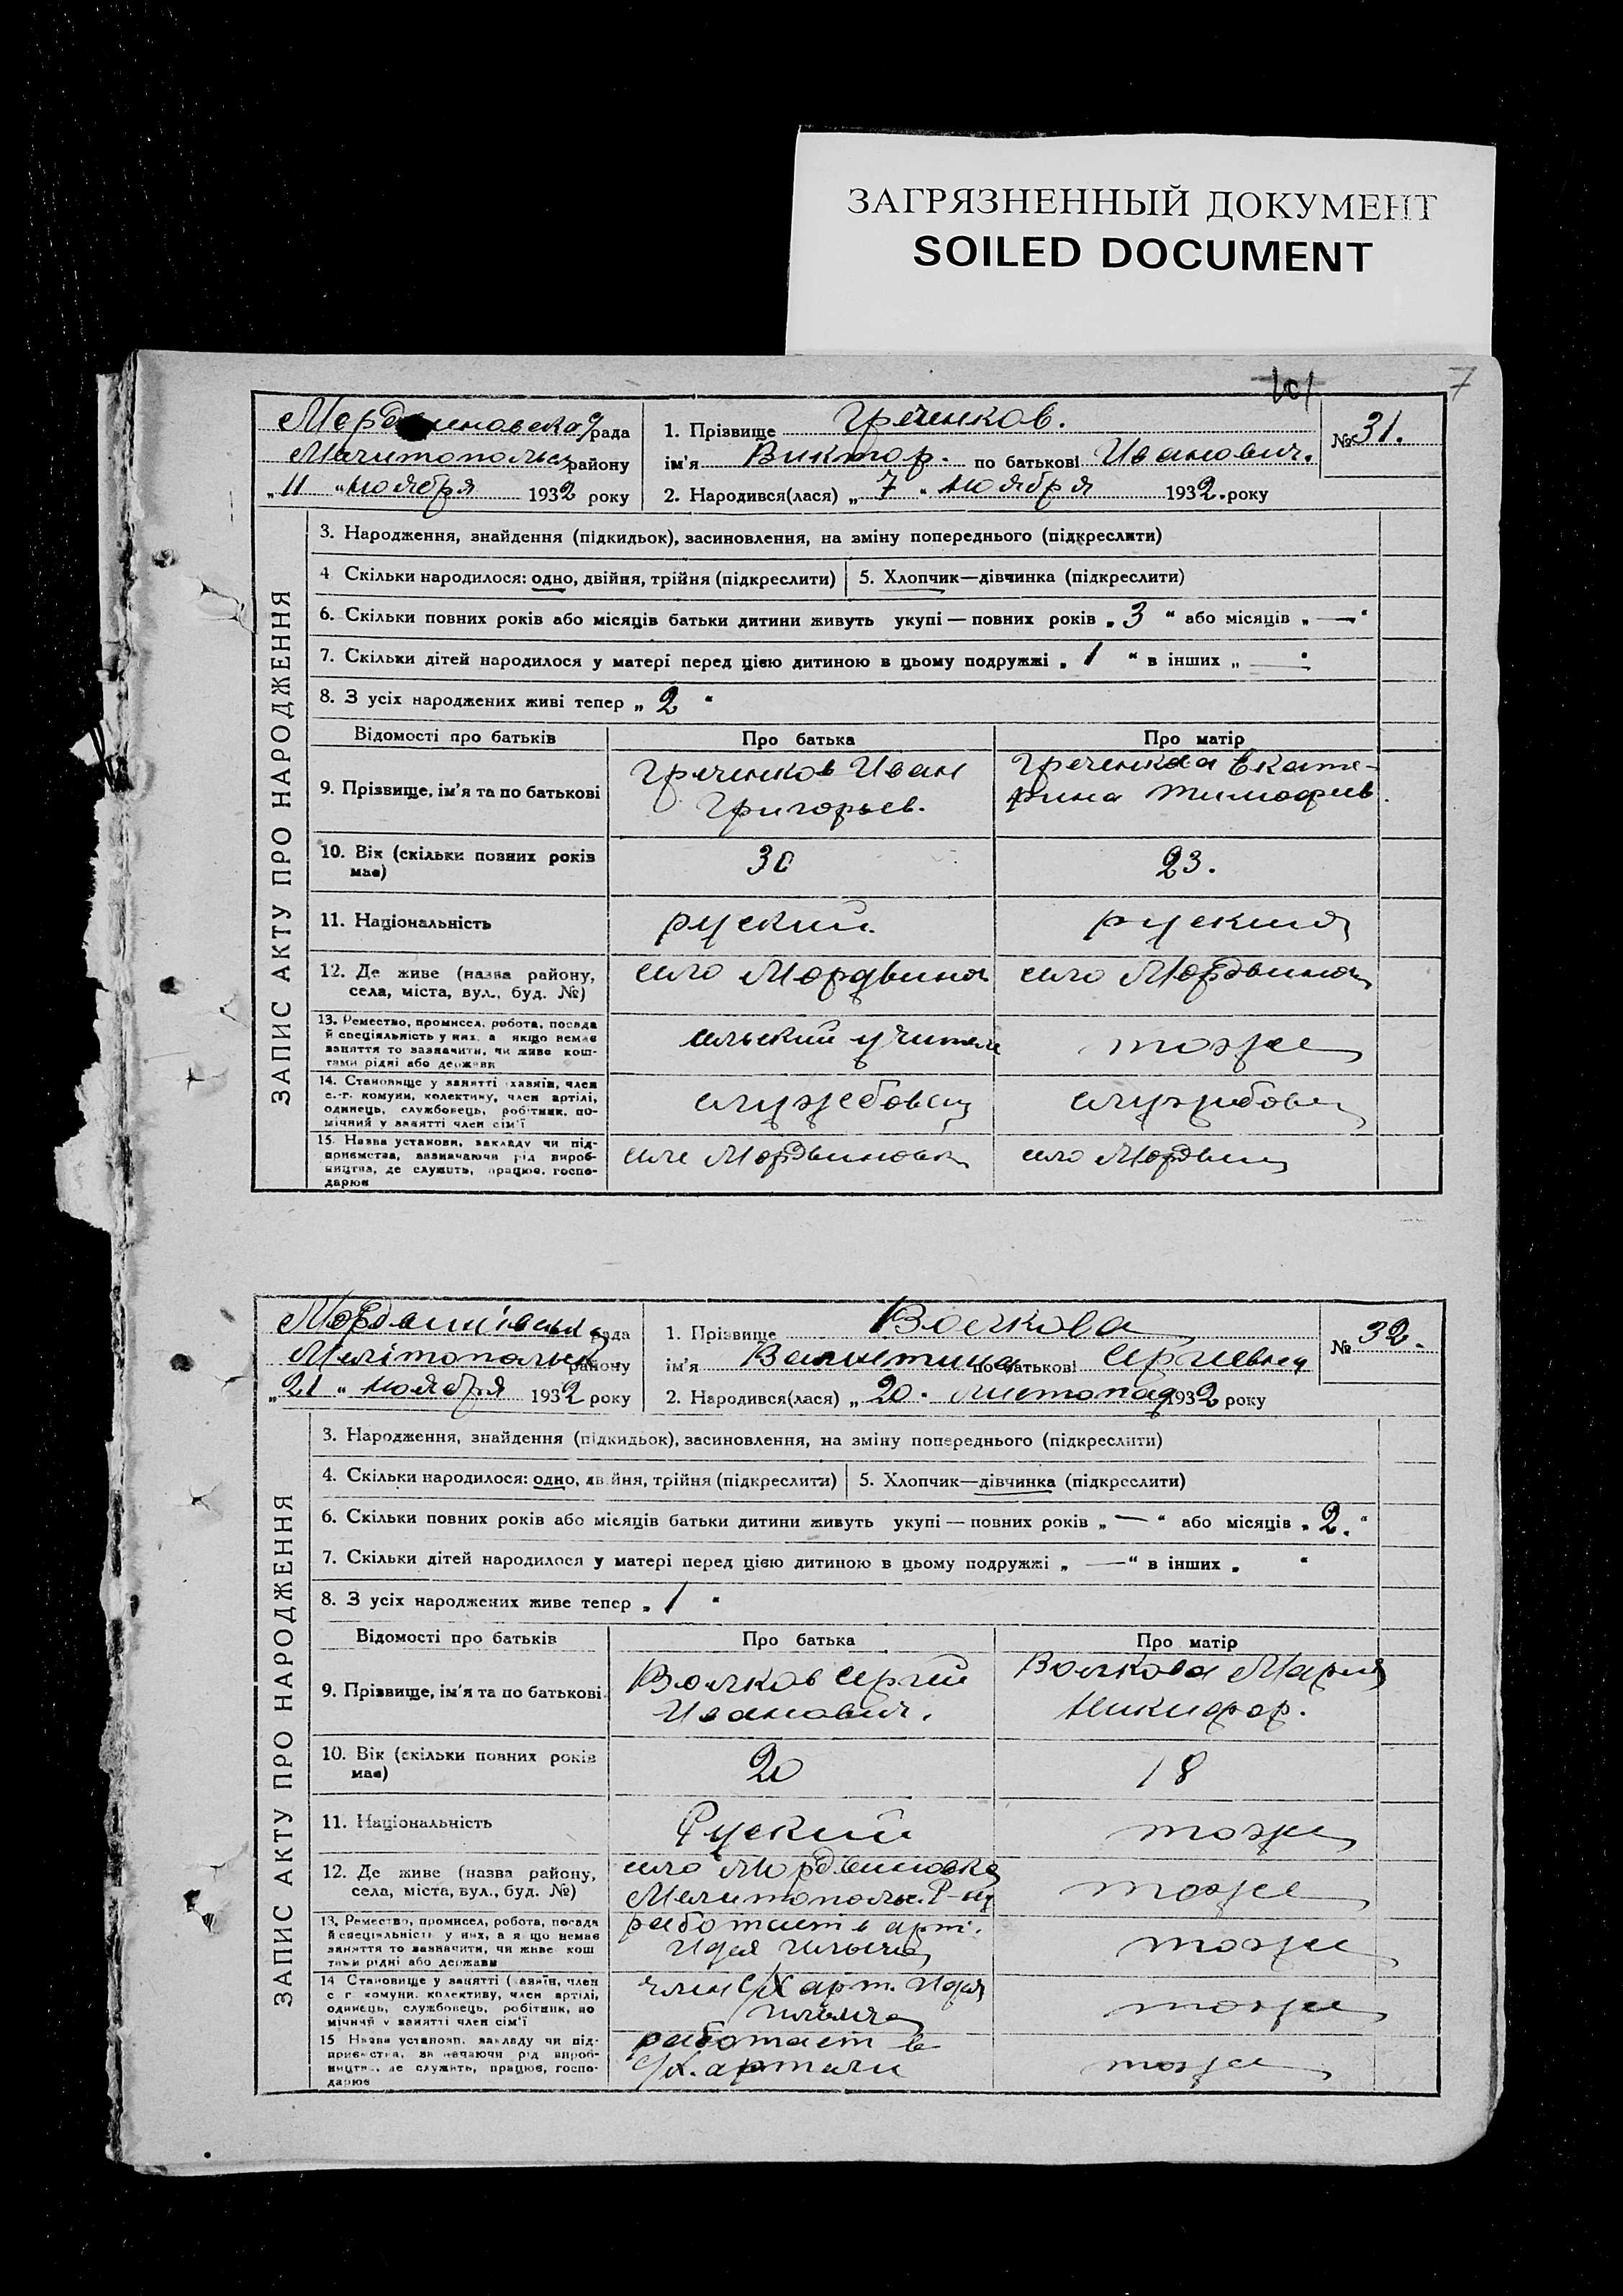 ЗАГРЯЗНЕННЫЙ ДОКУМЕНТ
SOILED DOCUMENT
7
рада
1. Прізвище Греченков.
№ 31.
району
ім'я Виктор. по батькові Иванович.
„ 11 " ноября 1932 року
2. Народився(лася) „ 7 " ноября 1932. року
ЗАПИС АКТУ ПРО НАРОДЖЕННЯ
3. Народження, знайдення (підкидьок), засиновлення, на зміну попереднього (підкреслити)
4 Скільки народилося: одно, двійня, трійня (підкреслити)
5. Хлопчик—дівчинка (підкреслити)
6. Скільки повних років або місяців батьки дитини живуть укупі — повних років „ 3 " або місяців „ — "
7. Скільки дітей народилося у матері перед цією дитиною в цьому подружжі „ 1 " в інших „ — "
8. З усіх народжених живі тепер „ 2 "
Відомості про батьків
Про батька
Про матір
9. Прізвище, ім'я та по батькові
Греченков Иван
Григорьев.
Греченкова Екате-
рина Тимофеев.
10. Вік (скільки повних років
має)
30
23.
11. Національність
руский.
руския
12. Де живе (назва району,
села, міста, вул., буд. №)
село Мордвинов
село Мордвинов
13. Ремество, промисел, робота, посада
й спеціяльність у них, а якщо немає
заняття то зазначити, чи живе кош-
тами рідні або держави
сельский учитель
тоже
14. Становище у занятті (хазяїн, член
с.-г. комуни, колективу, член артілі,
одинець, службовець, робітник, по-
мічний у занятті член сім'ї
служебовец
служебовец
15. Назва установи, закладу чи під-
приємства, зазначаючи рід вироб-
ництва, де служить, працює, госпо-
дарює
село Мордвиновк
село Мордвин
рада
1. Прізвище Волкова
№ 32.
району
ім'я Валентина по батькові Сергиевна
„ 21 " ноября 1932 року
2. Народився(лася) „ 20. листопад 1932 року
ЗАПИС АКТУ ПРО НАРОДЖЕННЯ
3. Народження, знайдення (підкидьок), засиновлення, на зміну попереднього (підкреслити)
4. Скільки народилося: одно, двійня, трійня (підкреслити)
5. Хлопчик—дівчинка (підкреслити)
6. Скільки повних років або місяців батьки дитини живуть укупі — повних років „ — " або місяців „ 2. "
7. Скільки дітей народилося у матері перед цією дитиною в цьому подружжі „ — " в інших „ "
8. З усіх народжених живе тепер „ 1 "
Відомості про батьків
Про батька
Про матір
9. Прізвище, ім'я та по батькові.
Волков Сергий
Иванович.
Волкова Мария
Никифор.
10. Вік (скільки повних років
має)
20
18
11. Національність
Руский
тоже
12. Де живе (назва району,
села, міста, вул., буд. №)
село Мордвиновка
Мелитопольс. Р-ну
тоже
13. Ремество, промисел, робота, посада
й спеціяльність у них, а якщо немає
заняття то зазначити, чи живе кош
тами рідні або держави
работает в арт.
Идея Ильича
тоже
14 Становище у занятті (хазяїн, член
с г комуни, колективу, член артілі,
одинець, службовець, робітник, по
мічний у занятті член сім'ї
член с/х арт. Идея
Ильича
тоже
15 Назва установи, закладу чи під-
приємства, зазначаючи рід вироб-
ництва, де служить, працює, госпо-
дарює
работает в
с/х. артели
тоже